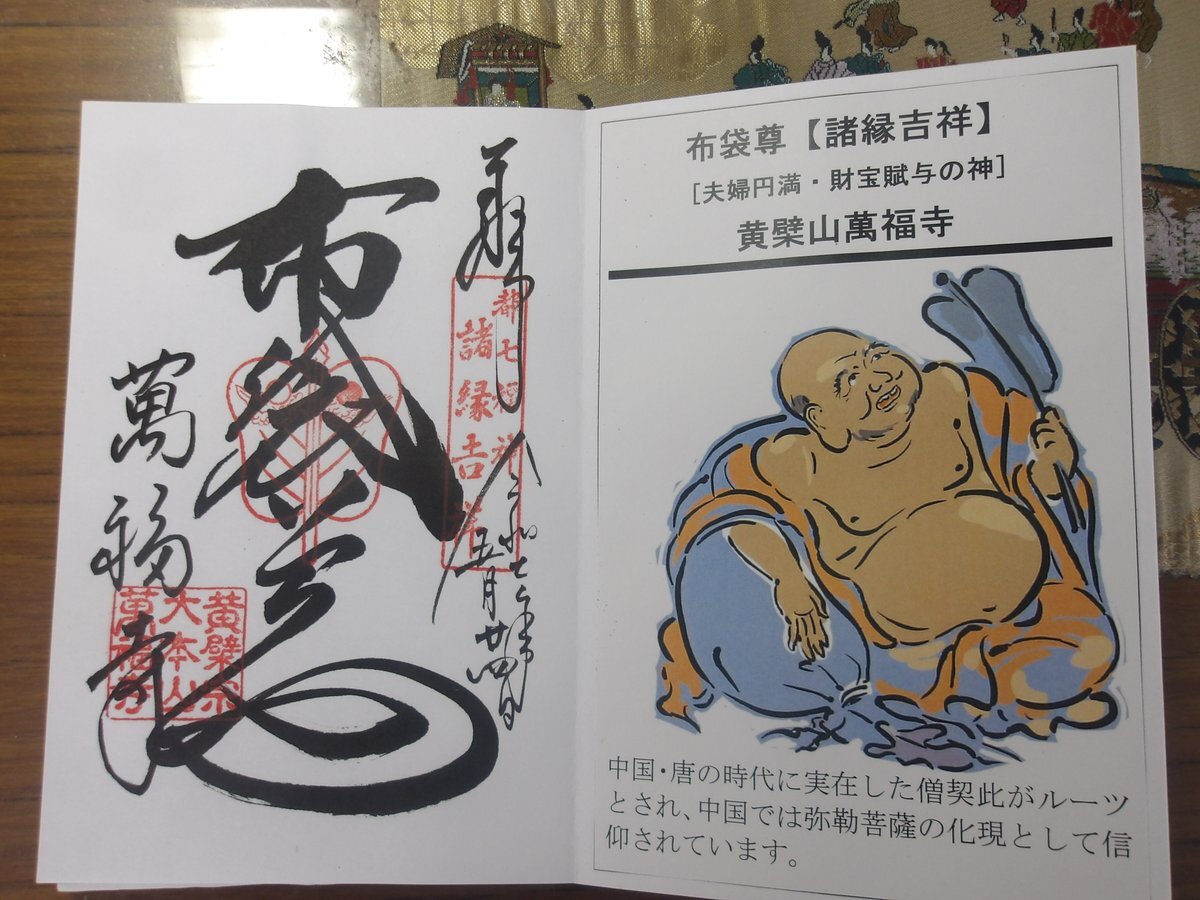 布袋尊【諸縁吉祥】
[夫婦円満・財宝賦与の神]
黄檗山萬福寺
中国・唐の時代に実在した僧契此がルーツ
とされ、中国では弥勒菩薩の化現として信
仰されています。
奉拝
都七福神
諸縁吉祥
令和七年五月廿四日
布袋尊
萬福寺
黄檗宗
大本山
萬福寺